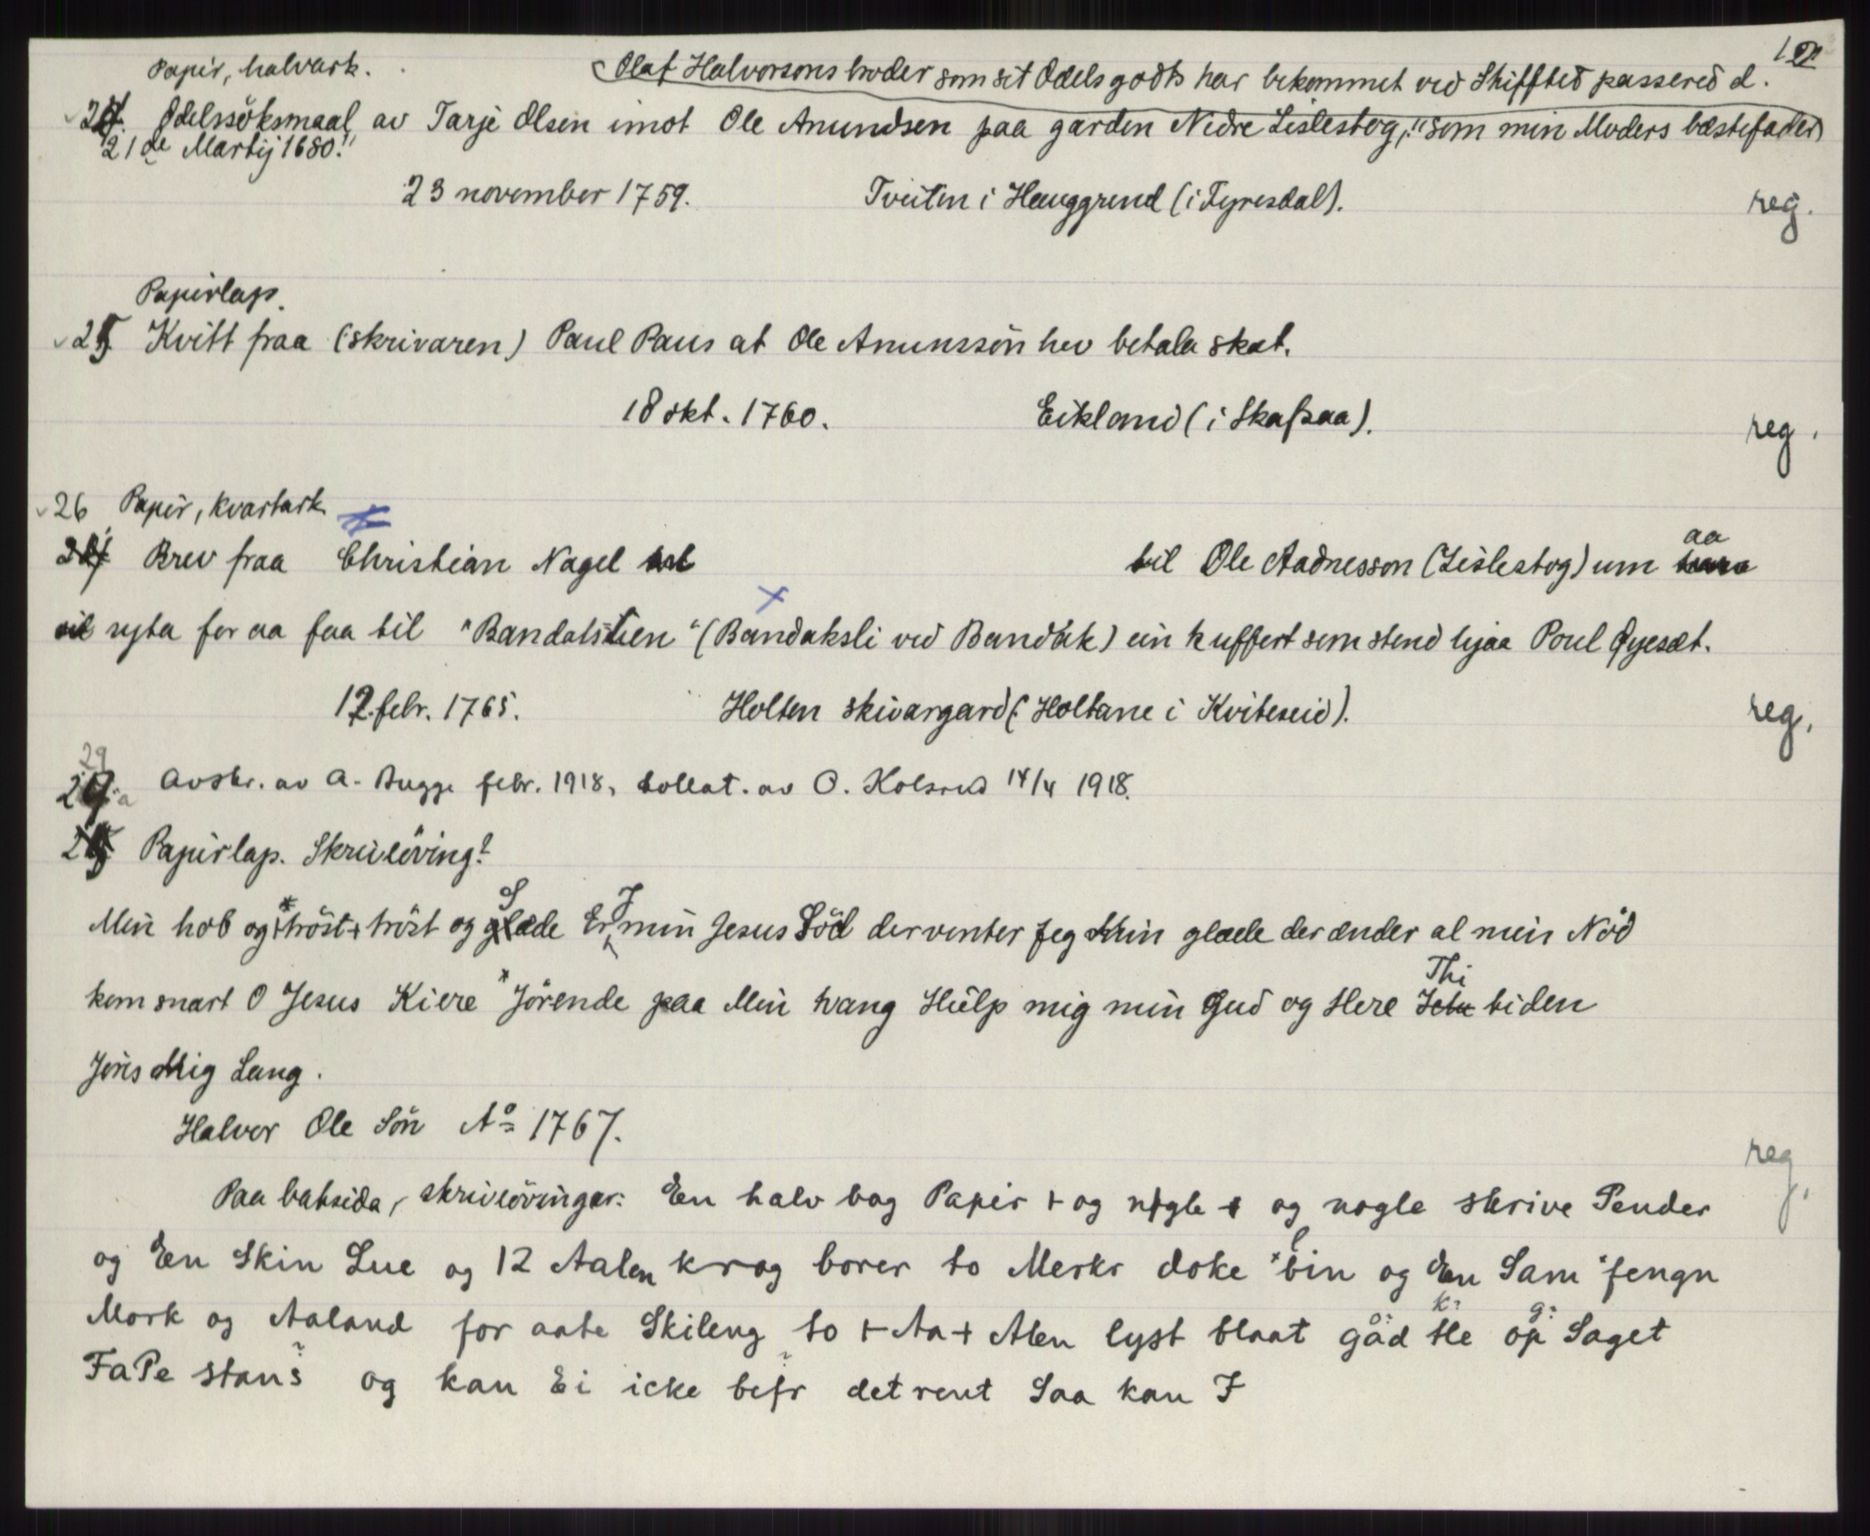 Papir, halvark.
Olaf Halvorsons broder som sit Odels godts har bekommet ved Skiffted passered d.
24. Odelssöksmaal av Tarje Olsen imot Ole Anundsen paa garden Nedre Lislestog, "som min Moders bæstefader
21de Martij 1680."
23 november 1759. Tveiten i Hauggrend (i Fyresdal). reg.
Papirlap.
25 Kvitt fraa (skrivaren) Paul Paus at Ole Anunssön hev betala skat.
18 okt. 1760. Eikland (i Skafsaa). reg.
26 Papir, kvartark
Brev fraa Christian Nagel til Ole Aadnesson (Lislestog) um aa
syta for aa faa til "Bandalslien" (Bandaksli ved Bandak) ein kuffert som stend hjaa Poul Øyesæt.
12. febr. 1765. Holten skivargard (: Holtane i Kviteseid). reg.
29
Avskr. av A. Bugge febr. 1918, kollat. av O. Kolsrud 14/4 1918.
Papirlap. Skrivöving?
Min hob og +tröst+ tröst og Glæde Er J min Jesus Söd der venter Jeg Min glæde der ænder al min Nöd
kom snart O Jesus Kiere *Jörende paa Min hvang Hielp mig min Gud og Here Thi tiden
Jöris Mig Lang.
Halvor Ole Sön Aº 1767. reg.
Paa baksida, skrivövingar: En halv bog Papir + og nogle + og nogle skrive Pender
og En Skin Lue og 12 Aalen krog borer to Merkr doke *bin og En Sam *fengn
Mork og Aaland for aate Skileng to + Aa + Alen lyst blaat gåd He op Saget
FaPe stans og kan Ei icke befr det rent Saa kan I